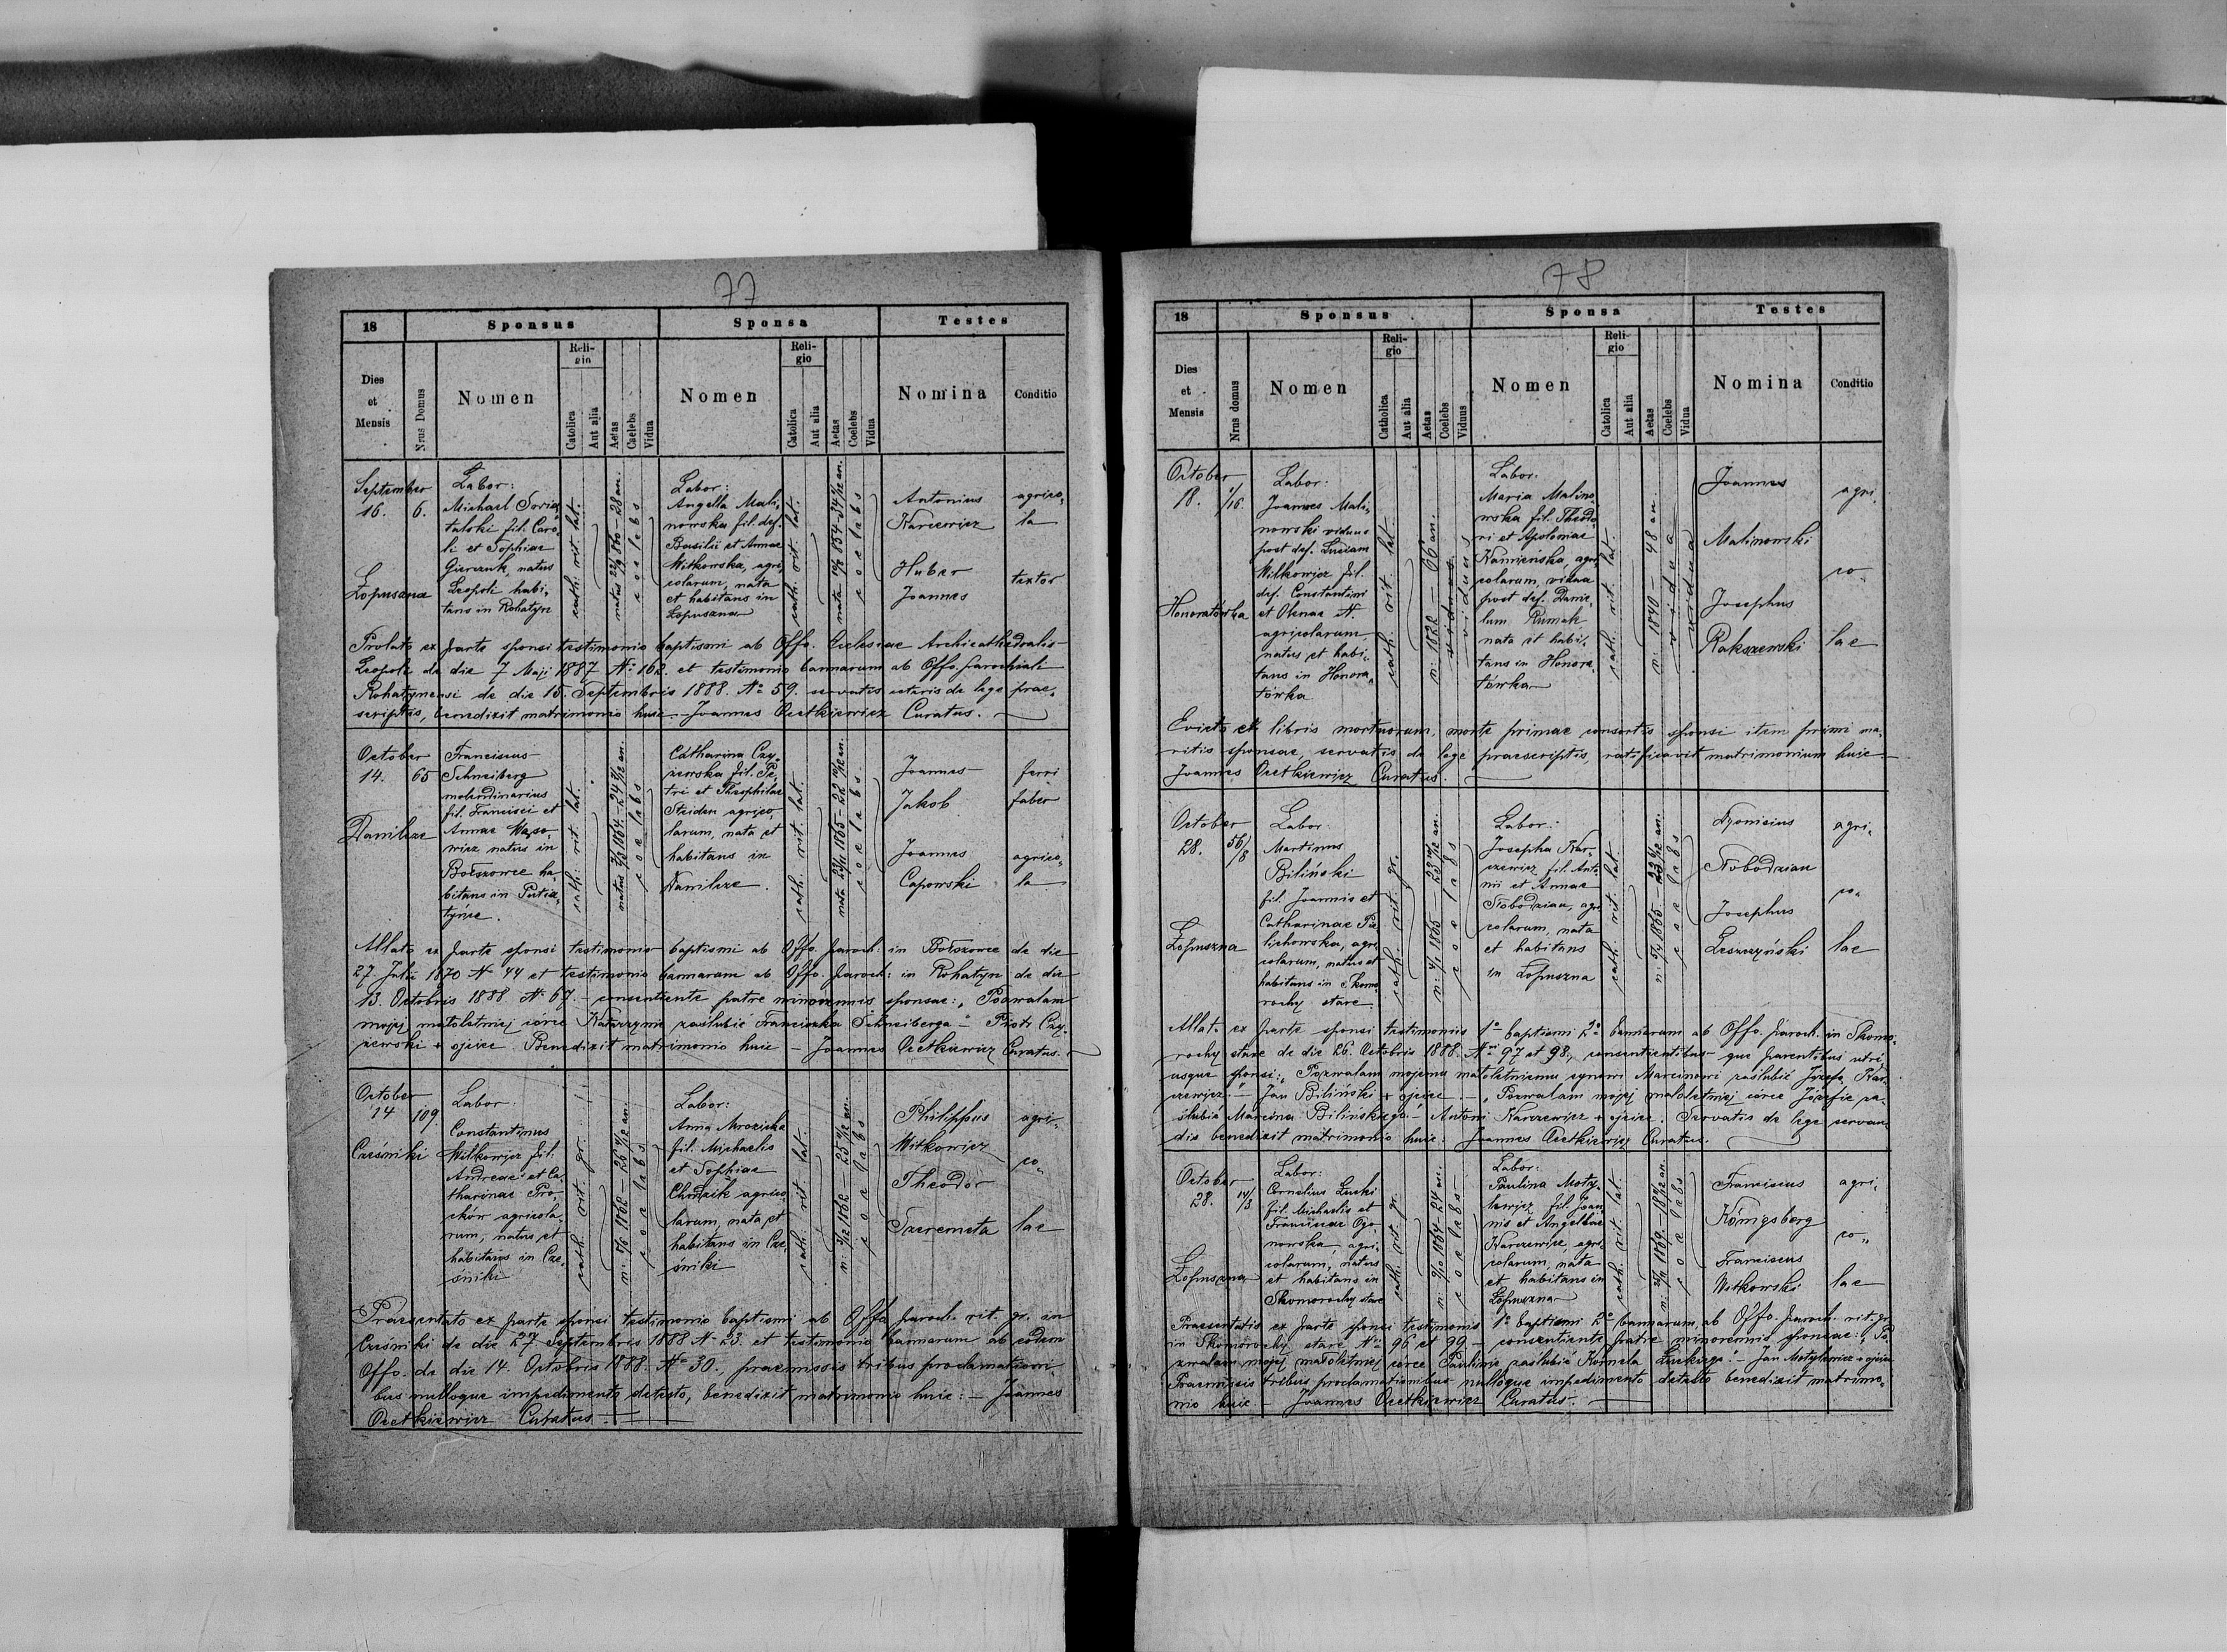 77
18
Sponsus
Sponsa
Testes
Dies
et
Mensis
Nrus Domus
Nomen
Reli-
gio
Catolica
Aut alia
Aetas
Caelebs
Vidua
Nomen
Reli-
gio
Catolica
Aut alia
Aetas
Coelebs
Vidua
Nomina
Conditio
September
16.
6.
Łopuszna
Labor:
Michael
talski fil. Caro-
li et Sophiae
natus
Leopoli habi-
tans in Rohatyn
cath. rit. lat.
28 an.
coelebs
Labor:
Angella Mali-
nowska fil. def.
Basilii et Annae
Witkowska, agri-
colarum, nata
et habitans in
Łopuszna
cath. rit. lat.
coelebs
Antonius
Karczewicz
Huber
Joannes
agrico-
la
textor
Prolato ex parte sponsi testimonio baptismi ab Offo. Ecclesiae Archicathedralis
Leopoli de die 7 Maji 1887 No 162. et testimonio bannorum ab Offo. parochiali
Rohatynensi de die 15. Septembris 1888. No 59. servatis ceteris de lege prae-
scriptis, benedixit matrimonio huic - Joannes Ocetkiewicz Curatus.
October
14.
65
Danilcze
Franciscus
Schneiberg
molendinarius
fil. Francisci et
Annae
wicz natus in
Bołszowce ha-
bitans in Putia-
tyńce.
cath. rit. lat.
coelebs
Catharina Czy-
żewska fil. Pe-
tri et Theophilae
agrico-
larum, nata et
habitans in
Danilcze.
cath. rit. lat.
coelebs
Joannes
Jakob
Joannes
Capowski
ferri
faber
agrico-
la
Allato ex parte sponsi testimonio baptismi ab Offo. paroch: in Bołszowce de die
27. Julii 1870 No 44 et testimonio bannorum ab Offo. paroch: in Rohatyn de die
13. Octobris 1888 No 67. - consentiente patre minorennis sponsae: „Pozwalam
mojej małoletniej córce Katarzynie zaślubić Franciszka Schneiberga" - Piotr Czy-
żewski + ojciec. Benedixit matrimonio huic - Joannes Ocetkiewicz Curatus.
October
14
109.
Cześniki
Labor:
Constantinus
Witkowicz fil.
Andreae et Ca-
tharinae Pro-
ckóv agricola-
rum, natus et
habitans in Cze-
śniki
cath. rit. gr.
coelebs
Labor:
Anna Mrozicka
fil. Michaelis
et Sophiae
Chudzik agrico-
larum, nata et
habitans in Cze-
śniki
cath. rit. lat.
coelebs
Philippus
Witkowicz
Theodor
Szeremeta
agri-
co-
lae
Praesentato ex parte sponsi testimonio baptismi ab Offo. paroch. rit. gr. in
Cześniki de die 27 Septembris 1888 No 23. et testimonio bannorum ab eodem
Offo. de die 14. Octobris 1888. No 30., praemissis tribus proclamationi-
bus nulloque impedimento detecto, benedixit matrimonio huic: - Joannes
Ocetkiewicz Curatus.
78
18
Sponsus
Sponsa
Testes
Dies
et
Mensis
Nrus domus
Nomen
Reli-
gio
Catholica
Aut alia
Aetas
Coelebs
Viduus
Nomen
Reli-
gio
Catolica
Aut alia
Aetas
Coelebs
Vidua
Nomina
Conditio
October
18.
1/16.
Honoratówka
Labor:
Joannes Mali-
nowski viduus
post def. Luciam
Witkowicz fil.
def. Constantini
et Olenae N.
agricolarum
natus et habi-
tans in Honora-
tówka
cath. rit. lat.
n: 1822 - 66 an.
viduus
Labor.
Maria Malino-
wska fil. Theodo-
ri et Apoloniae
Kamieńska, agri-
colarum, vidua
post def. Danie-
lem Rumak
nata et habi-
tans in Honora-
tówka
cath. rit. lat.
n: 1840 - 48 an.
vidua
Joannes
Malinowski
Josephus
Rakszewski
agri-
co-
lae
Evicto ex libris mortuorum, morte primae consortis sponsi item primi ma-
ritis sponsae, servatis de lege praescriptis, ratificavit matrimonium huic -
Joannes Ocetkiewicz Curatus.
October
28.
56/8
Łopuszna
Labor.
Martinus
Biliński
fil. Joannis et
Catharinae Pie-
lichowska, agri-
colarum, natus et
habitans in Skomo-
rochy stare
cath. rit. gr.
coelebs
Labor:
Josepha Kar-
czewicz fil. Anto-
nii et Annae
Słobodzian, agri-
colarum, nata
et habitans
in Łopuszna
cath. rit. lat.
coelebs
Dyonisius
Słobodzian
Josephus
Leszczyński
agri-
co-
lae
Allat. ex parte sponsi testimoniis 1o baptismi 2o bannorum ab Offo. paroch. in Skomo-
rochy stare de die 26. Octobris 1888. Nris 97 et 98., consentientibus que parentibus utri-
usque sponsi: „Pozwalam mojemu małoletniemu synowi Marcinowi zaślubić Józefę Kar-
czewicz" - Jan Biliński + ojciec. - „Pozwalam mojej małoletniej córce Józefie za-
ślubić Marcina Bilińskiego" - Antoni Karczewicz + ojciec. Servatis de lege servan-
dis benedixit matrimonio huic: Joannes Ocetkiewicz Curatus.
October
28.
14/3
Łopuszna
Labor:
Cornelius Łucki
fil. Michaelis et
Franciscae Ogo-
nowska, agri-
colarum, natus
et habitans in
Skomorochy stare
cath. rit. gr.
coelebs
Labor:
Paulina Moty-
lewicz fil. Joan-
nis et Angellae
Karczewicz, agri-
colarum, nata
et habitans in
Łopuszna
cath. rit. lat.
coelebs
Franciscus
Königsberg
Franciscus
Witkowski
agri-
co-
lae
Praesentatis ex parte sponsi testimoniis 1o baptismi 2o bannorum, ab Offo. paroch. rit. gr.
in Skomorochy stare Nris 96 et 99 - consentiente patre minorennis sponsae: „Po-
zwalam mojej małoletniej córce Paulinie zaślubić Kornela Łuckiego" - Jan Motylewicz + ojciec
Praemissis tribus proclamationibus nulloque impedimento detecto benedixit matrimo-
nio huic - Joannes Ocetkiewicz Curatus.